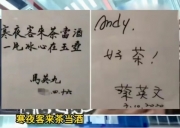 寒夜客来茶當酒
一片冰心在玉壺
馬英九
Andy,
好茶!
蔡英文
寒夜客来茶当酒